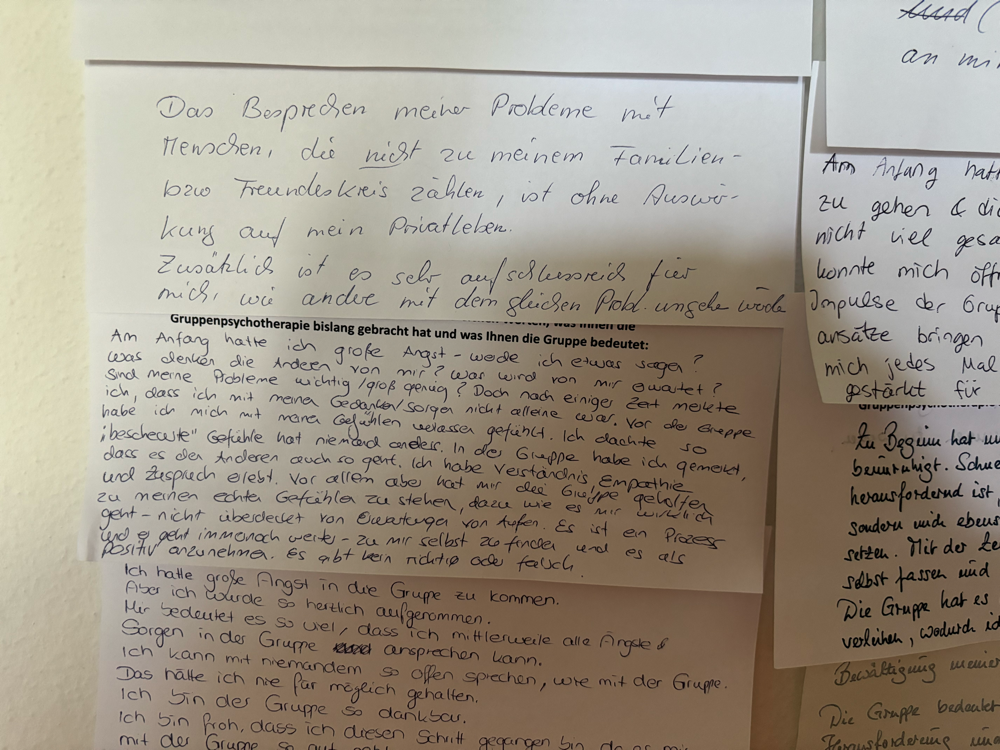 Das Besprechen meiner Probleme mit
Menschen, die nicht zu meinem Familien-
bzw Freundeskreis zählen, ist ohne Auswir-
kung auf mein Privatleben.
Zusätzlich ist es sehr aufschlussreich für
mich, wie andre mit dem gleichen Probl. umgehe
was Ihnen die
Gruppenpsychotherapie bislang gebracht hat und was Ihnen die Gruppe bedeutet:
Am Anfang hatte ich große Angst – werde ich etwas sagen?
Was denken die Anderen von mir? Was wird von mir erwartet?
Sind meine Probleme wichtig/groß genug? Doch nach einiger Zeit merkte
ich, dass ich mit meinen Gedanken/Sorgen nicht alleine war. Vor der Gruppe
habe ich mich mit meinen Gefühlen verlassen gefühlt. Ich dachte so
„bescheuerte" Gefühle hat niemand anders. In der Gruppe habe ich gemerkt,
dass es den Anderen auch so geht. Ich habe Verständnis, Empathie
und Zuspruch erlebt. Vor allem aber hat mir die Gruppe geholfen
zu meinen echten Gefühlen zu stehen, dazu wie es mir wirklich
geht – nicht überdeckt von Erwartungen von Außen. Es ist ein Prozess
und er geht immernoch weiter – zu mir selbst zu finden und es als
positiv anzunehmen. Es gibt kein richtig oder falsch.
Ich hatte große Angst in die Gruppe zu kommen.
Aber ich wurde so herzlich aufgenommen.
Mir bedeutet es so viel, dass ich mittlerweile alle Ängste &
Sorgen in der Gruppe ansprechen kann.
Ich kann mit niemandem so offen sprechen, wie mit der Gruppe.
Das hätte ich nie für möglich gehalten.
Ich bin der Gruppe so dankbar.
Ich bin froh, dass ich diesen Schritt gegangen bin
mit der Gruppe so gut
und (
an mi
Am Anfang hat
zu gehen & di
nicht viel gesa
konnte mich öff
Impulse der Gru
ansätze bringen
mich jedes Mal
gestärkt für
Gruppenpsychothera
Zu Beginn hat
beunruhigt. Schne
herausfordernd ist
sondern mich ebens
setzen. Mit der Ze
selbst fassen und
Die Gruppe hat es
verleihen, wodurch ic
Bewältigung meiner
Die Gruppe bedeutet
Herausforderung und